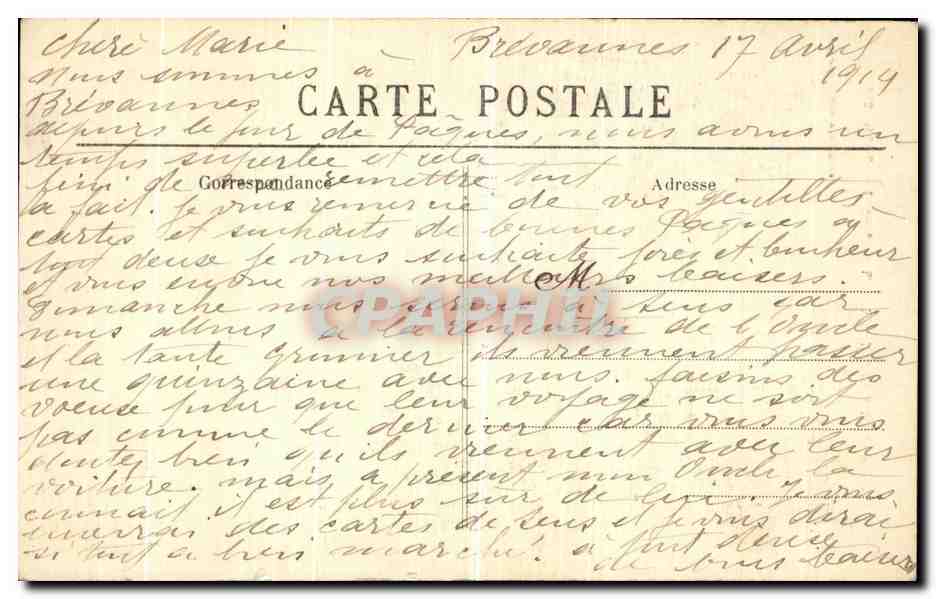 Cherè Marie Brévannes 17 avril
nous sommes à 1914
Brévannes
CARTE POSTALE
depuis le jour de Pâques, nous avons un
temps superbe et cela
Correspondance Adresse
fini de remettre tout
à fait. Je vous remercie de vos gentilles
cartes et souhaits de bonnes Pâques a
tout deuse je vous souhaite et bonheur
et vous envoie nos meilleurs baisers.
M
Dimanche nous serons à Sens car
nous allons à la rencontre de l'Oncle
et la tante ils viennent passer
une quinzaine avec nous. faisons des
voeuse pour que leur voyage ne soit
pas comme le dernier car vous vous
doutez bien qu'ils viennent avec leur
voiture. mais a présent mon Oncle la
connait il est plus sur de lui. Je vous
enverrai des cartes de Sens et je vous dirai
si tout a bien marché. à tout deuse
de bons baisers
CPAPHIL